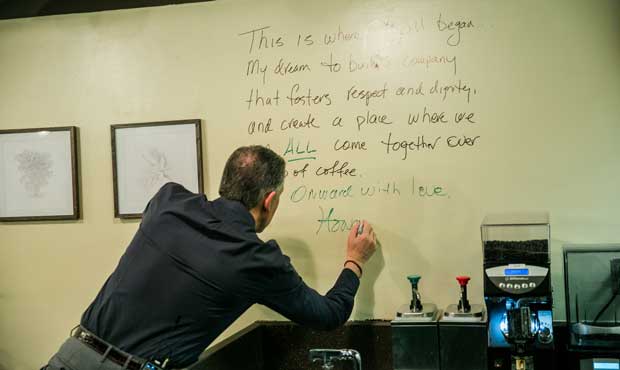 This is where it all began...
My dream to build a company
that fosters respect and dignity,
and create a place where we
ALL come together over
of coffee.
Onward with love,
How